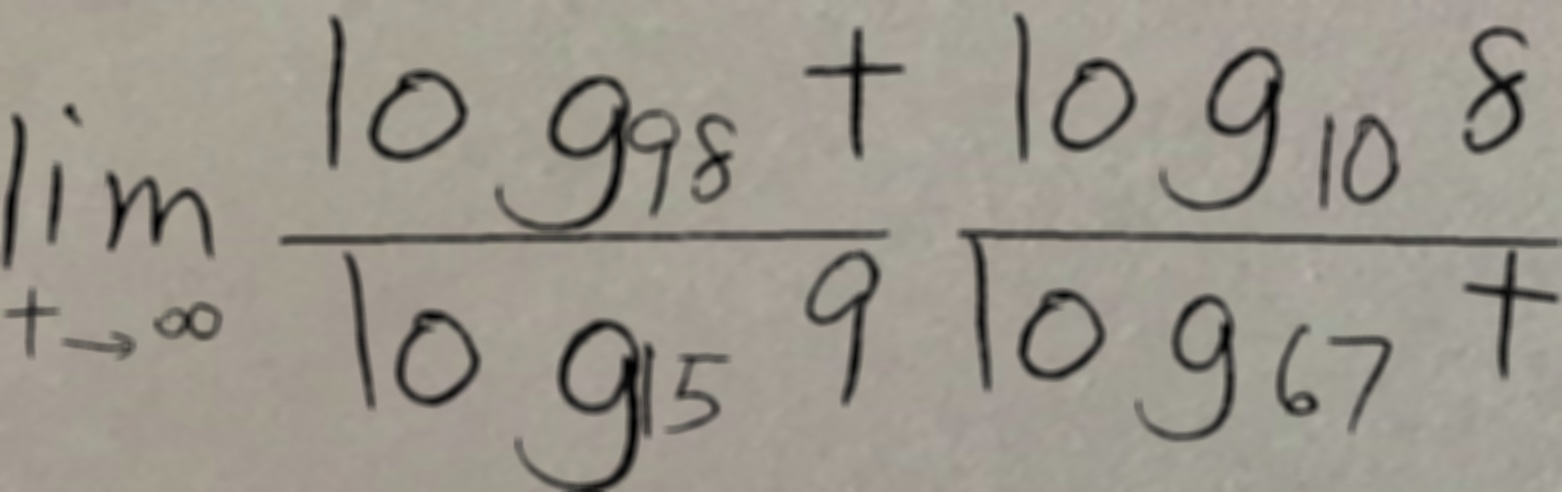 lim t→∞ log₉₈ t / log₁₅ 9 log₁₀ 8 / log₆₇ t